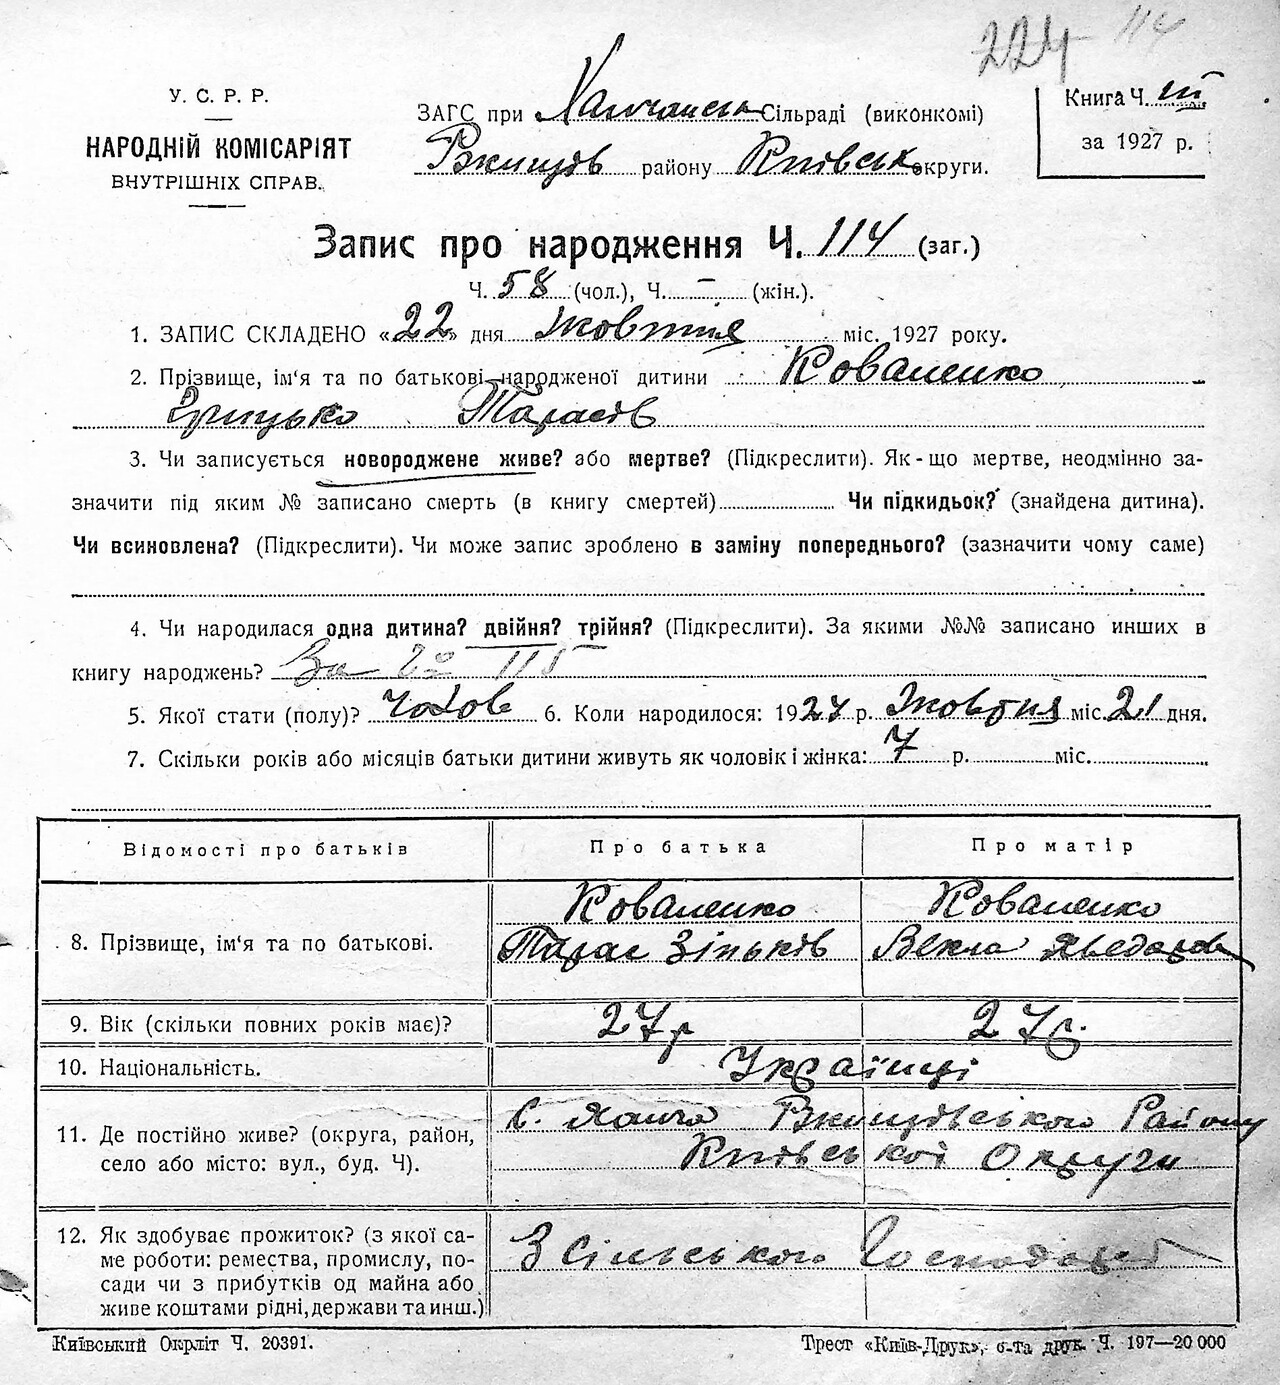 224 114
У. С. Р. Р.
НАРОДНІЙ КОМІСАРІЯТ
ВНУТРІШНІХ СПРАВ.
ЗАГС при Ханчанськ Сільраді (виконкомі)
Ржищів району Київськ округи.
Книга Ч. III
за 1927 р.
Запис про народження Ч. 114 (заг.)
Ч. 58 (чол.), Ч. – (жін.).
1. ЗАПИС СКЛАДЕНО «22» дня Жовтня міс. 1927 року.
2. Прізвище, ім'я та по батькові народженої дитини Коваленко
Грицько Тарасів
3. Чи записується новороджене живе? або мертве? (Підкреслити). Як-що мертве, неодмінно за-
значити під яким № записано смерть (в книгу смертей) Чи підкидьок? (знайдена дитина).
Чи всиновлена? (Підкреслити). Чи може запис зроблено в заміну попереднього? (зазначити чому саме)
4. Чи народилася одна дитина? двійня? трійня? (Підкреслити). За якими №№ записано инших в
книгу народжень? За 115
5. Якої стати (полу)? Чолов 6. Коли народилося: 1927 р. Жовтня міс. 21 дня.
7. Скільки років або місяців батьки дитини живуть як чоловік і жінка: 7 р. міс.
Відомості про батьків Про батька Про матір
8. Прізвище, ім'я та по батькові. Коваленко Коваленко
Тарас Зіньків Векла
9. Вік (скільки повних років має)? 27 р 27 р.
10. Національність. Українці
11. Де постійно живе? (округа, район,
село або місто: вул., буд. Ч).
С. Ханча Ржищівського Району
Київської Округи
12. Як здобуває прожиток? (з якої са-
ме роботи: ремества, промислу, по-
сади чи з прибутків од майна або
живе коштами рідні, держави та инш.)
З сільського Господарст
Київський Окрліт Ч. 20391. Трест «Київ-Друк», 6-та друк. Ч. 197—20000